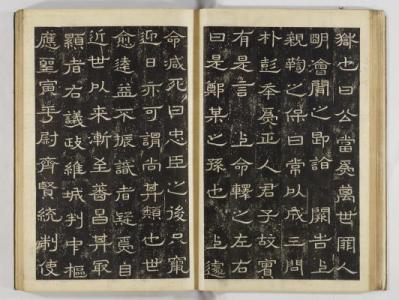 獄也曰公當爲萬世罪人
明澮聞之即詣 闕告上
親鞫之保曰常以成三問
朴彭秊爲正人君子故實
有是言 上命釋之左右
曰是鄭某之孫也 上遽
命減死曰忠臣之後只竄
迎日亦可謂尚其類也世
愈遠益不振識者疑焉自
近世以來漸至蕃昌其冣
顯者右議政維城判中樞
應聖寅平尉齊賢統制使